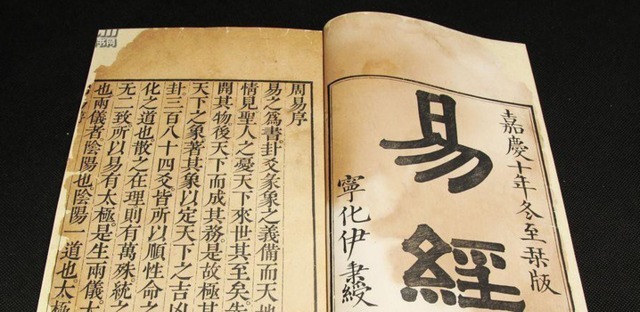 嘉慶十年冬至栞版
易經
寧化伊秉綬
周易序
易之爲書卦爻彖象之義備而天地
情見聖人之憂天下來世其至矣先
開其物後天下而成其務是故極其
天下之象著其象以定天下之吉凶
卦三百八十四爻皆所以順性命之
化之道也散之在理則有萬殊統之
无二致所以易有太極是生兩儀太
也兩儀者陰陽也陰陽一道也太極